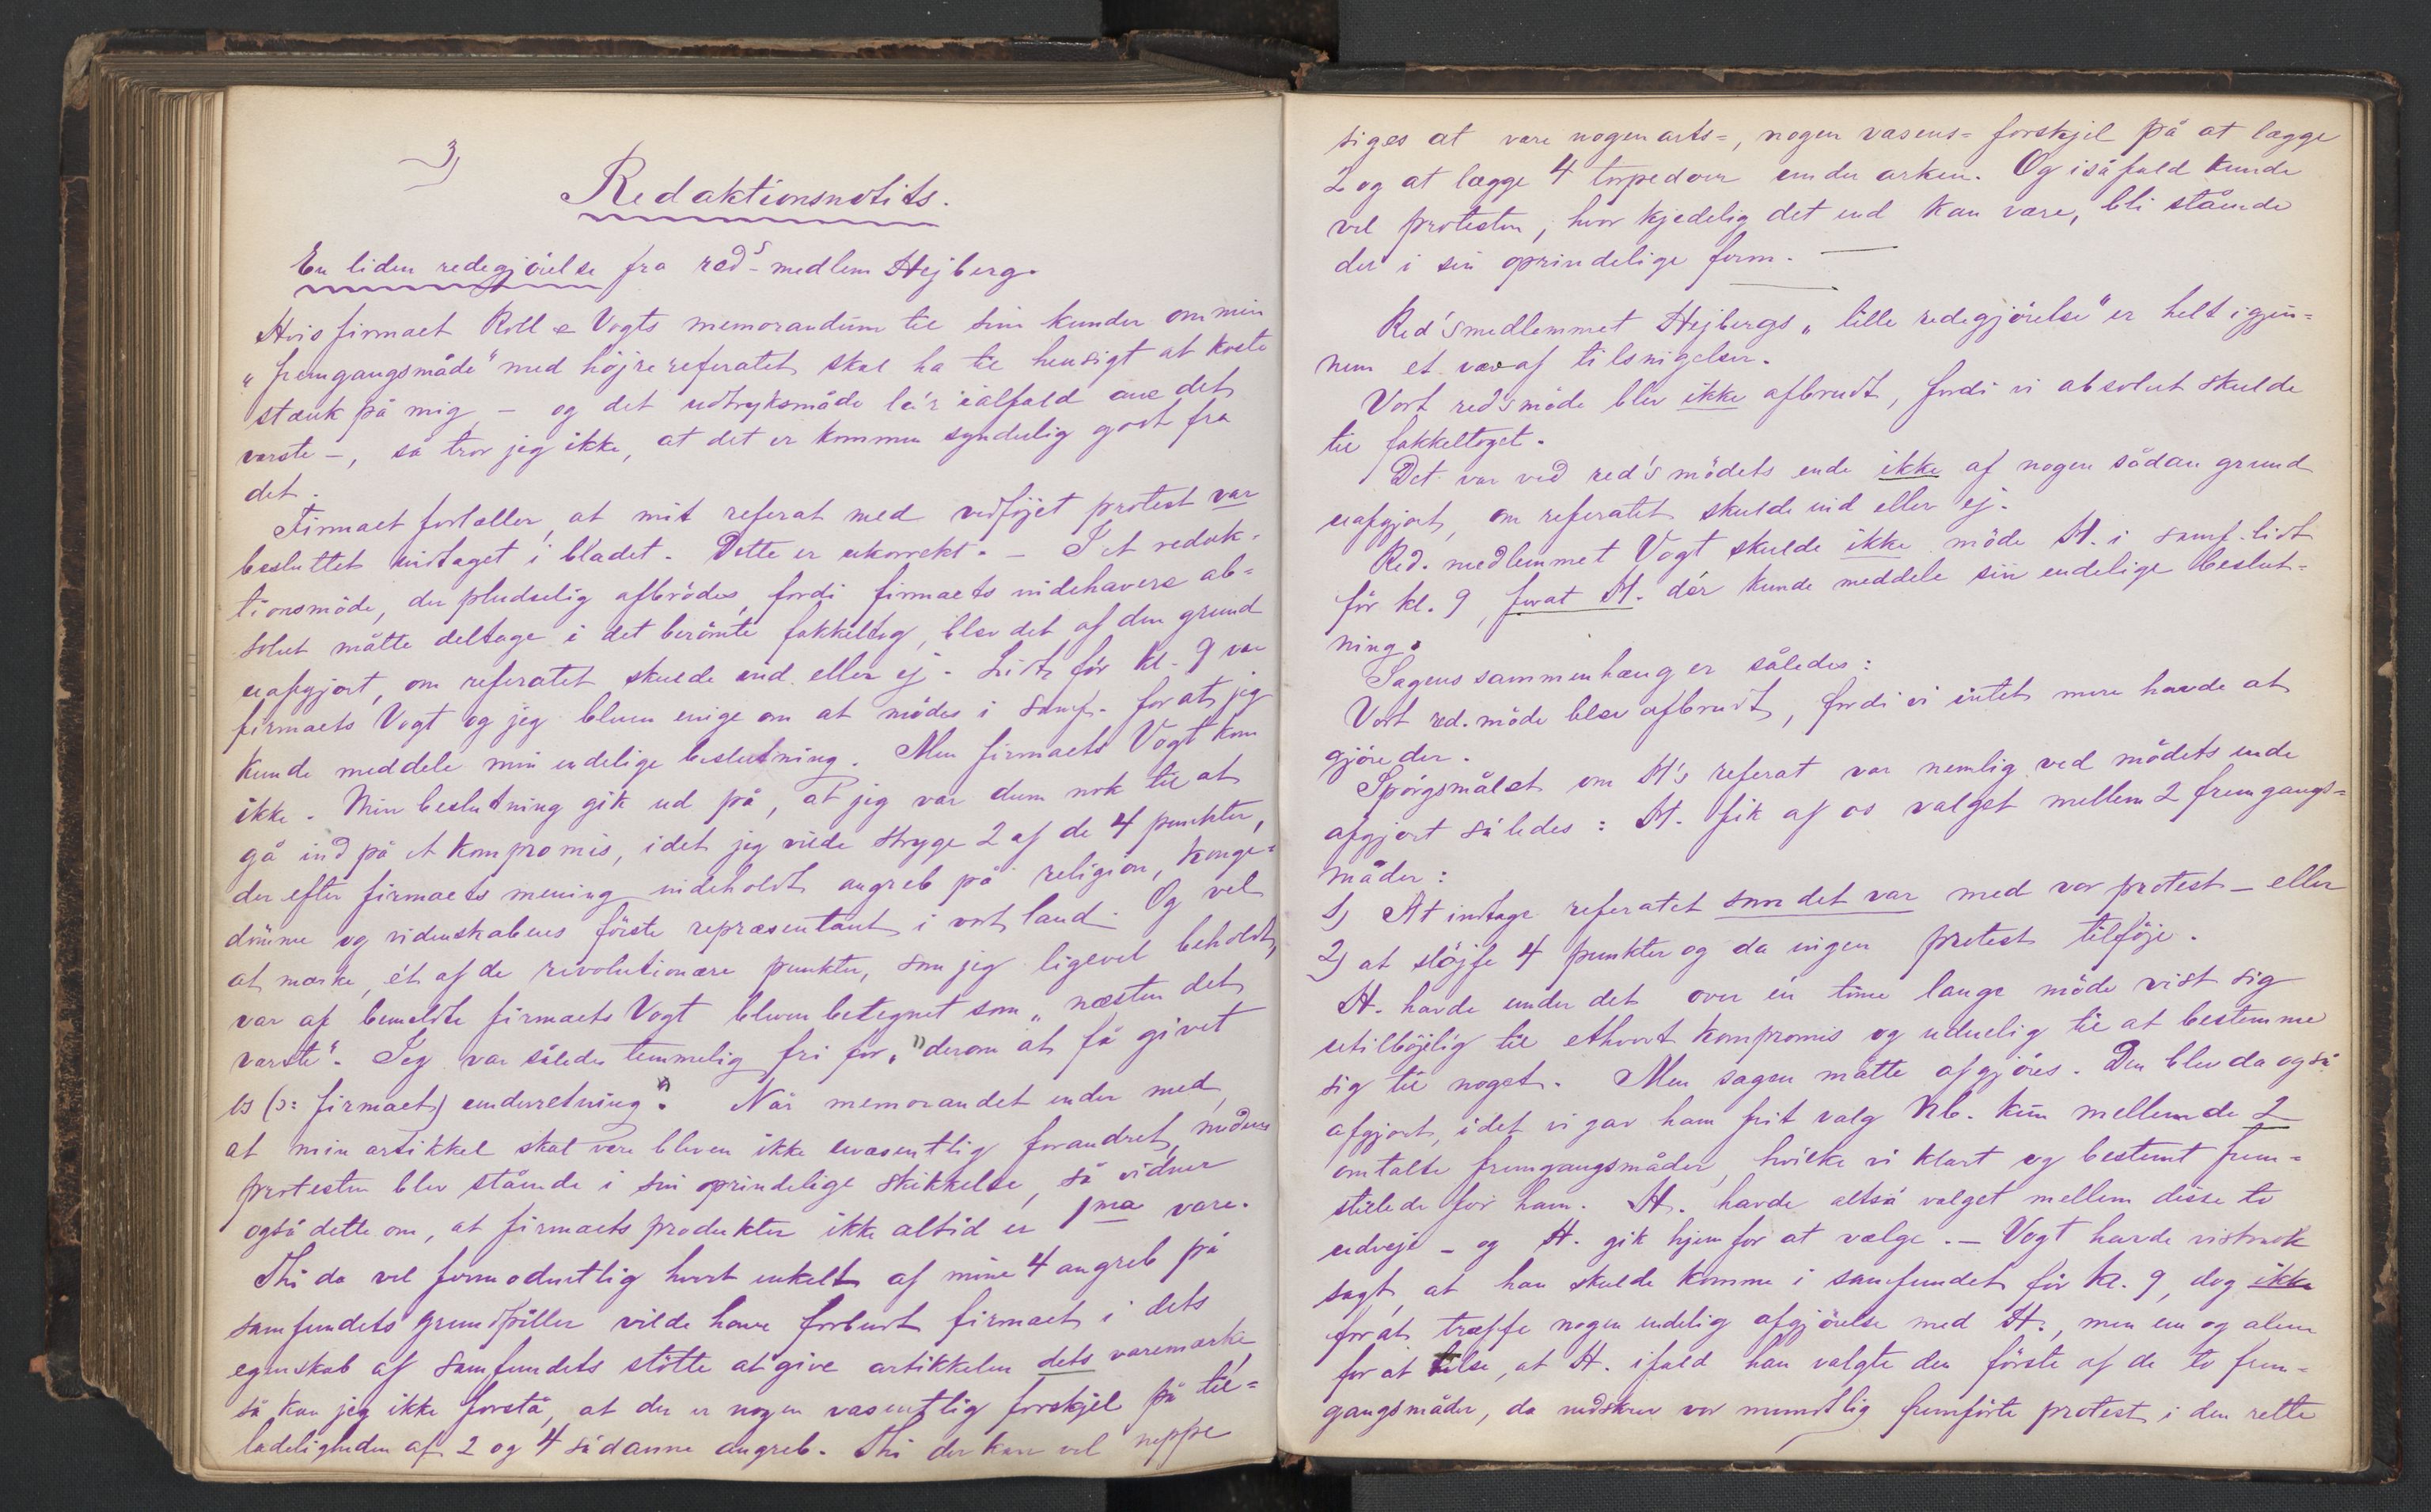 3)
Redaktionsnotits.
En liden redegjörelse fra redˢ-medlem Hejberg.
Hvis firmaet Roll & Vogts memorandum til sine kunder om min
„fremgangsmåde" med höjrereferatet skal ha til hensigt at kaste
stænk på mig – og det udtryksmåde la'r ialfald ane det
værste –, så tror jeg ikke, at det er kommen synderlig godt fra
det.
Firmaet fortæller, at mit referat med vedföjet protest var
besluttet indtaget i bladet. Dette er ukorrekt. – I et redak-
tionsmöde, der pludselig afbrödes, fordi firmaets indehavere ab-
solut måtte deltage i det berömte fakkeltog, blev det af den grund
uafgjort, om referatet skulde ind eller ej. Lidt för kl. 9 var
firmaets Vogt og jeg blevne enige om at mödes i samf. forat jeg
kunde meddele min endelige beslutning. Men firmaets Vogt kom
ikke. Min beslutning gik ud på, at jeg var dum nok til at
gå ind på et kompromis, idet jeg vilde stryge 2 af de 4 punkter,
der efter firmaets mening indeholdt angreb på religion, konge-
dömme og videnskabens förste repræsentant i vort land. Og vel
at mærke, ét af de revolutionære punkter, som jeg ligevel beholdt,
var af bemeldte firmaets Vogt bleven betegnet som „næsten det
værste". Jeg var således temmelig fri for, "derom at få givet
os (ɔ: firmaet) underretning." Når memorandet ender med,
at min artikkel skal være bleven ikke uvæsentlig forandret, medens
protesten blev stående i sin oprindelige skikkelse, så vidner
også dette om, at firmaets produkter ikke altid er 1ma vare.
Thi da vel formodentlig hvert enkelt af mine 4 angreb på
samfundets grundpiller vilde have forbudt firmaet i dets
egenskab af samfundets stötte at give artikkelen dets varemærke,
så kan jeg ikke forstå, at der er nogen væsentlig forskjel på til-
ladeligheden af 2 og 4 sådanne angreb. Thi der kan vel neppe
siges at være nogen arts-, nogen væsens-forskjel på at lægge
2 og at lægge 4 torpedoer under arken. Og isåfald kunde
vel protesten, hvor kjedelig det end kan være, bli stående
der i sin oprindelige form. —
Red'smedlemmet Hejbergs „lille redegjörelse" er helt igjen-
nem et væv af tilsnigelser.
Vort redsmöde blev ikke afbrudt, fordi vi absolut skulde
til fakkeltoget.
Det var ved red's mödets ende ikke af nogen sådan grund
uafgjort, om referatet skulde ind eller ej.
Red. medlemmet Vogt skulde ikke möde H. i samf. lidt
för kl. 9, forat H. dér kunde meddele sin endelige beslut-
ning.
Sagens sammenhæng er således:
Vort red. möde blev afbrudt, fordi vi intet mere havde at
gjöre der.
Spörgsmålet om H's referat var nemlig ved mödets ende
afgjort således: H. fik af os valget mellem 2 fremgangs-
måder:
1) At indtage referatet som det var med vor protest – eller
2) at slöjfe 4 punkter og da ingen protest tilföje.
H. havde under det over én time lange möde vist sig
utilböjelig til ethvert kompromis og uduelig til at bestemme
sig til noget. Men sagen måtte afgjöres. Den blev da også
afgjort, idet vi gav ham frit valg Nb. kun mellem de 2
omtalte fremgangsmåder, hvilke vi klart og bestemt frem-
stillede for ham. H. havde altså valget mellem disse to
udveje – og H. gik hjem for at vælge. – Vogt havde vistnok
sagt, at han skulde komme i samfundet för kl. 9, dog ikke
forat træffe nogen endelig afgjörelse med H., men ene og alene
for at se, at H. ifald han valgte den förste af de to frem-
gangsmåder, da nedskrev vor mundtlig fremförte protest i den rette